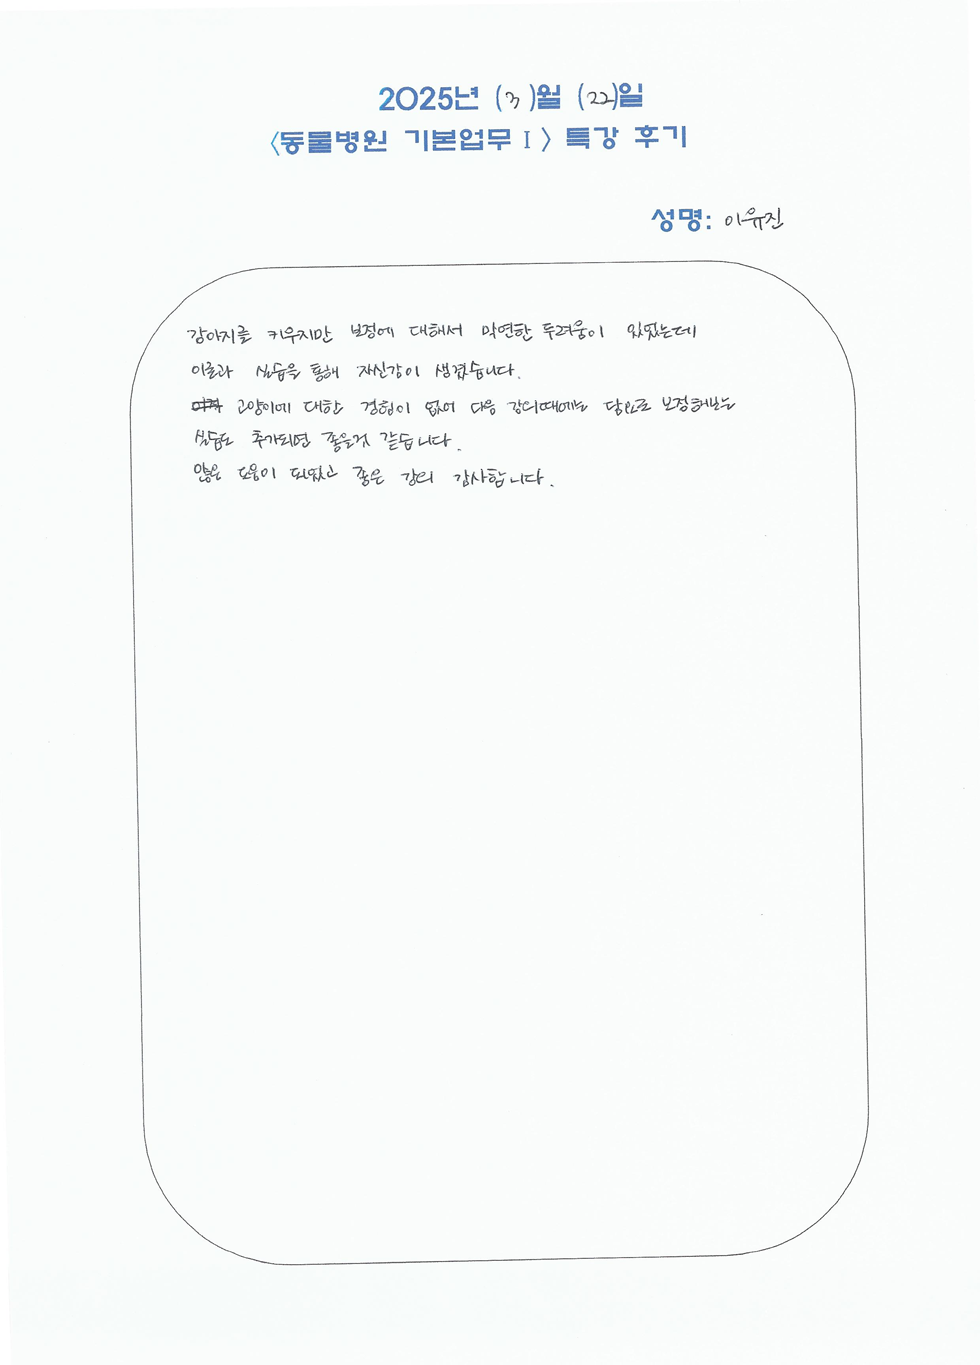 2025년 (3)월 (22)일
<동물병원 기본업무 I> 특강 후기
성명: 이유진
강아지를 키우지만 보정에 대해서 막연한 두려움이 있었는데
이론과 실습을 통해 자신감이 생겼습니다.
고양이에 대한 경험이 없어 다음 강의때에는 담요로 보정해보는
실습도 추가되면 좋을것 같습니다.
많은 도움이 되었고 좋은 강의 감사합니다.